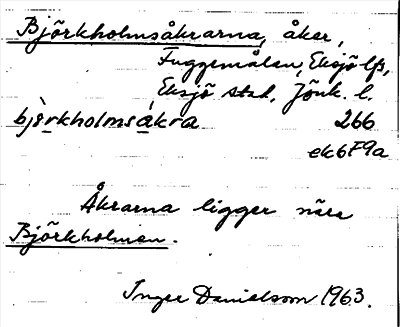 Björkholmsåkrarna, åker,
Fuggemålen, Eksjö lfs,
Eksjö stad, Jönk. l.
bjèrkholmsákra 266
ek6F9a
Åkrarna ligger nära
Björkholmen.
Inger Danielsson 1963.